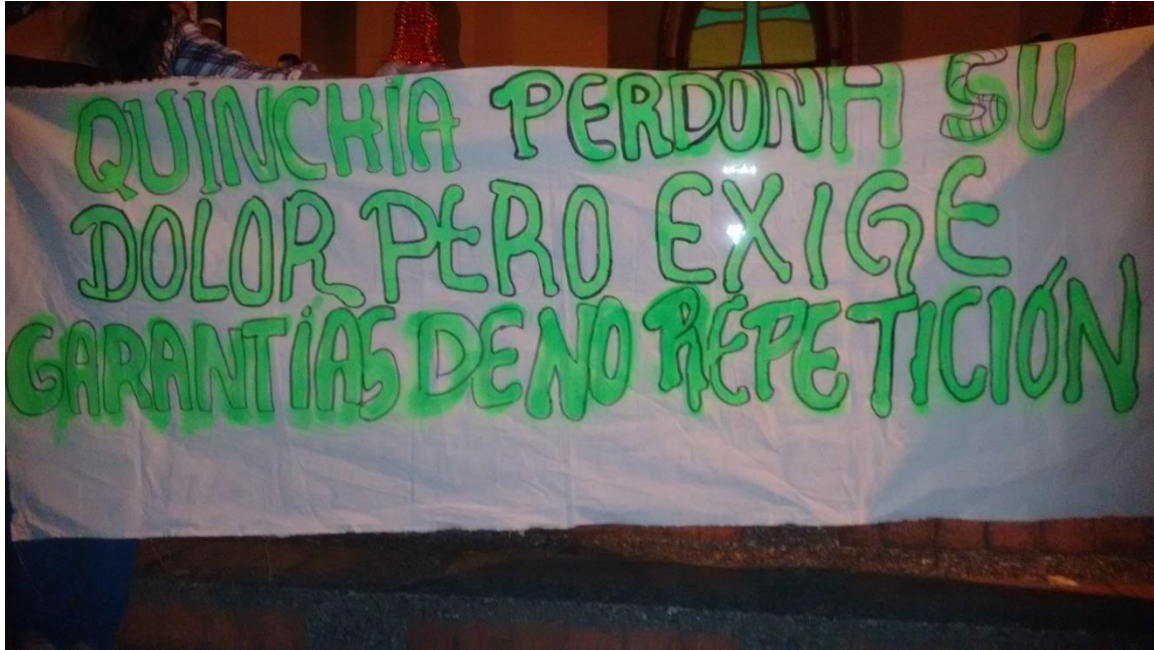 QUINCHÍA PERDONA SU
DOLOR PERO EXIGE
GARANTÍAS DE NO REPETICIÓN